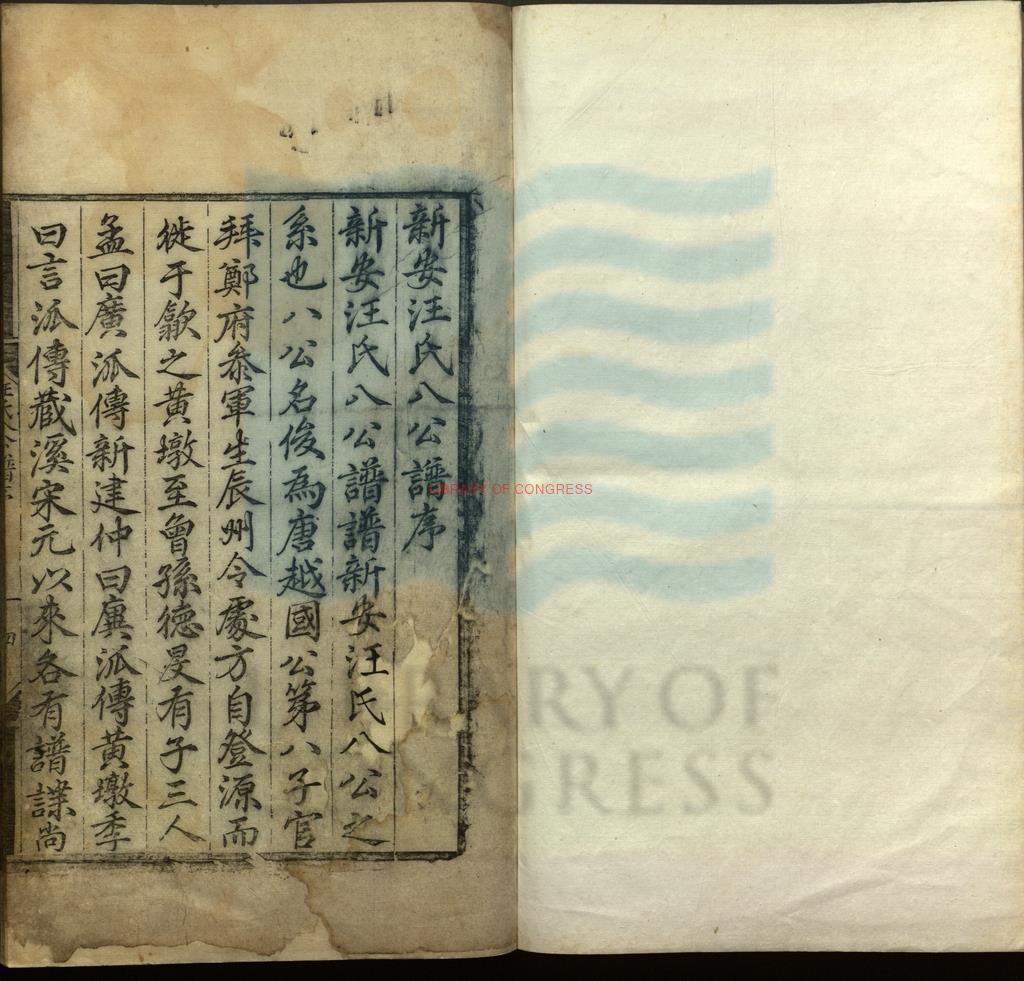 新安汪氏八公譜序
新安汪氏八公譜譜新安汪氏八公之
系也八公名俊為唐越國公第八子官
拜鄭府參軍生辰州令處方自登源而
徙于歙之黄墩至曾孫德旻有子三人
孟曰廣派傳新建仲曰廙派傳黄墩季
曰言派傳藏溪宋元以來各有譜諜尚
LIBRARY OF CONGRESS
LIBRARY OF
CONGRESS